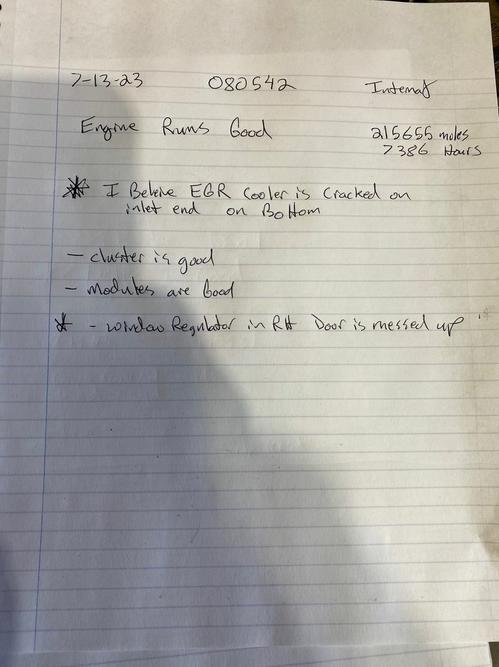 7-13-23 080542 Internat
Engine Runs Good 215655 miles
7386 Hours
* I Beleive EGR Cooler is Cracked on
inlet end on Bottom
- cluster is good
- modules are Good
* - window Regulator in RH Door is messed up